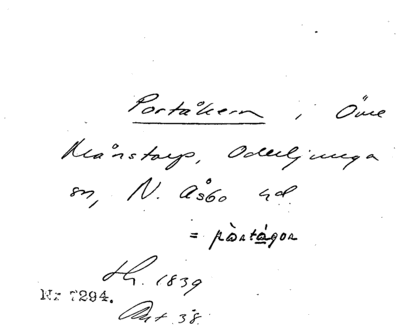 Portåkern, Övre
Månstorp, Oderljunga
sn, N. Åsbo hd
= pòrtågor
Hr. 1839
Nr 7294.
Akt 38